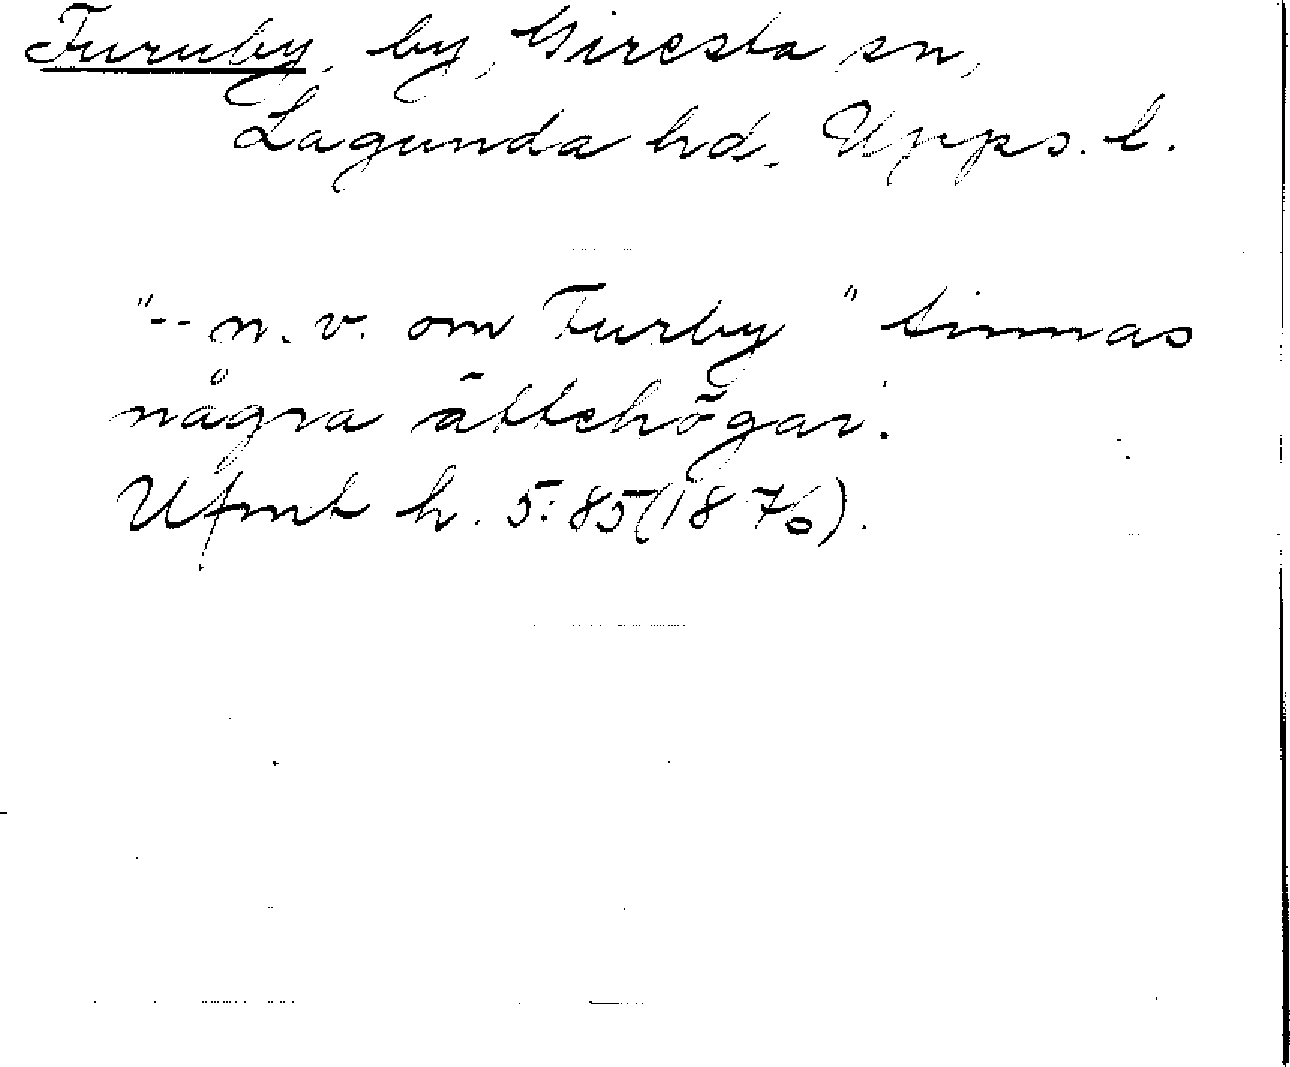 Furuby, by, Giresta sn,
Lagunda hd. Upps. l.
"-- n. v. om Furby " finnas
några ättehögar.
Ufmt h. 5: 85 (1876).